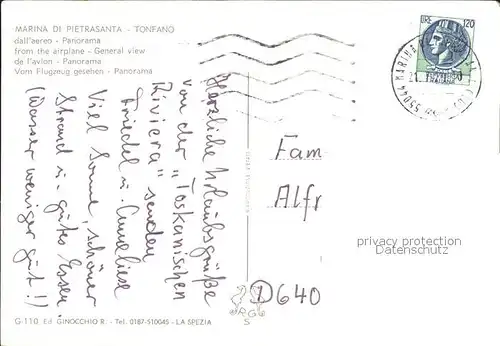 MARINA DI PIETRASANTA - TONFANO
dall'aereo - Panorama
from the airplane - General view
de l'avion - Panorama
Vom Flugzeug gesehen - Panorama
Herzliche Urlaubsgrüße
von der "Toskanischen
Riviera" senden
Friedel u. Anneliese
Viel Sonne, schöner
Strand u. gutes Essen.
(Wasser weniger gut!)
LIRE 120
55044 MARINA
Fam
Alfr
privacy protection
Datenschutz
D640
RG
S
G-110 Ed. GINOCCHIO R. - Tel. 0187-510045 - LA SPEZIA